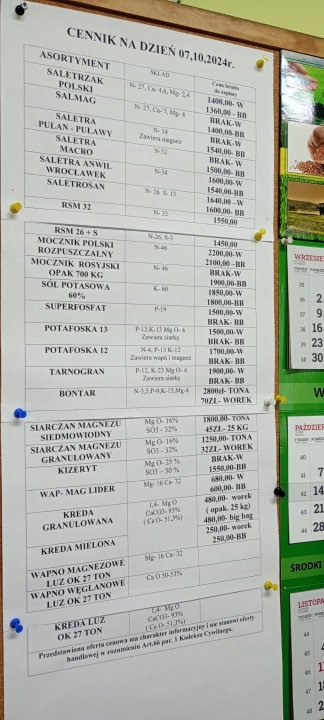 CENNIK NA DZIEŃ 07,10,2024r.
ASORTYMENT SKŁAD Cena brutto do zapłaty
SALETRZAK POLSKI N- 27, Ca- 4,6, Mg- 2,4 1400,00- W
1360,00 - BB
SALMAG N- 27, Ca- 7, Mg- 4 BRAK-W
1400,00-BB
SALETRA PULAN - PUŁAWY N- 34 Zawiera magnez BRAK-W
1540,00- BB
SALETRA MACRO N-32 BRAK- W
1500,00- BB
SALETRA ANWIL WROCŁAWEK N- 34 1600,00-W
1540,00-BB
SALETROSAN N- 26 S- 13 1640,00 –W
1600,00- BB
RSM 32 N- 32 1550,00
RSM 26 + S N-26, S-3 1450,00
MOCZNIK POLSKI ROZPUSZCZALNY N-46 2200,00-W
2100,00 -BB
MOCZNIK ROSYJSKI OPAK 700 KG N- 46 BRAK-W
1900,00-BB
SÓL POTASOWA 60% K- 60 1850,00-W
1800,00-BB
SUPERFOSFAT P-19 1500,00-W
BRAK- BB
POTAFOSKA 13 P-13,K-13 Mg O- 4 Zawiera siarkę 1500,00-W
BRAK- BB
POTAFOSKA 12 N-4, P-13 K-12 Zawiera wapń i magnez 1700,00-W
BRAK- BB
TARNOGRAN P-12, K-23 Mg O- 4 Zawiera siarkę 1900,00-W
BRAK- BB
BONTAR N-3,5,P-9,K-15,Mg-4 2800zł- TONA
70ZŁ- WOREK
SIARCZAN MAGNEZU SIEDMIOWODNY Mg O- 16% SO3 - 32% 1800,00- TONA
45ZŁ- 25 KG
SIARCZAN MAGNEZU GRANULOWANY Mg O- 16% SO3 - 32% 1250,00- TONA
32ZŁ- WOREK
KIZERYT Mg O- 25 % SO3 – 50 % BRAK-W
1550,00-BB
WAP- MAG LIDER Mg- 16 Ca- 32 680,00- W
600,00-BB
KREDA GRANULOWANA 1,4- Mg O CaCO3- 93% ( Ca O- 51,3%) 480,00- worek
( opak. 25 kg)
480,00- big bag
KREDA MIELONA 250,00- worek
250,00-BB
WAPNO MAGNEZOWE LUZ OK 27 TON Mg- 16 Ca- 32
WAPNO WĘGLANOWE LUZ OK 27 TON Ca O 50-53%
KREDA LUZ OK 27 TON 1,4- Mg O CaCO3- 93% ( Ca O- 51,3%)
Przedstawiona oferta cenowa ma charakter informacyjny i nie stanowi oferty
handlowej w rozumieniu Art.66 par. 1 Kodeksu Cywilnego.
WRZESIE
35
36 2
37 9
38 16
39 23
40 30
W
PAŹDZIER
40
41 7
42 14
43 21
44 28
ŚRODKI
LISTOPA
44
45
46
47
48